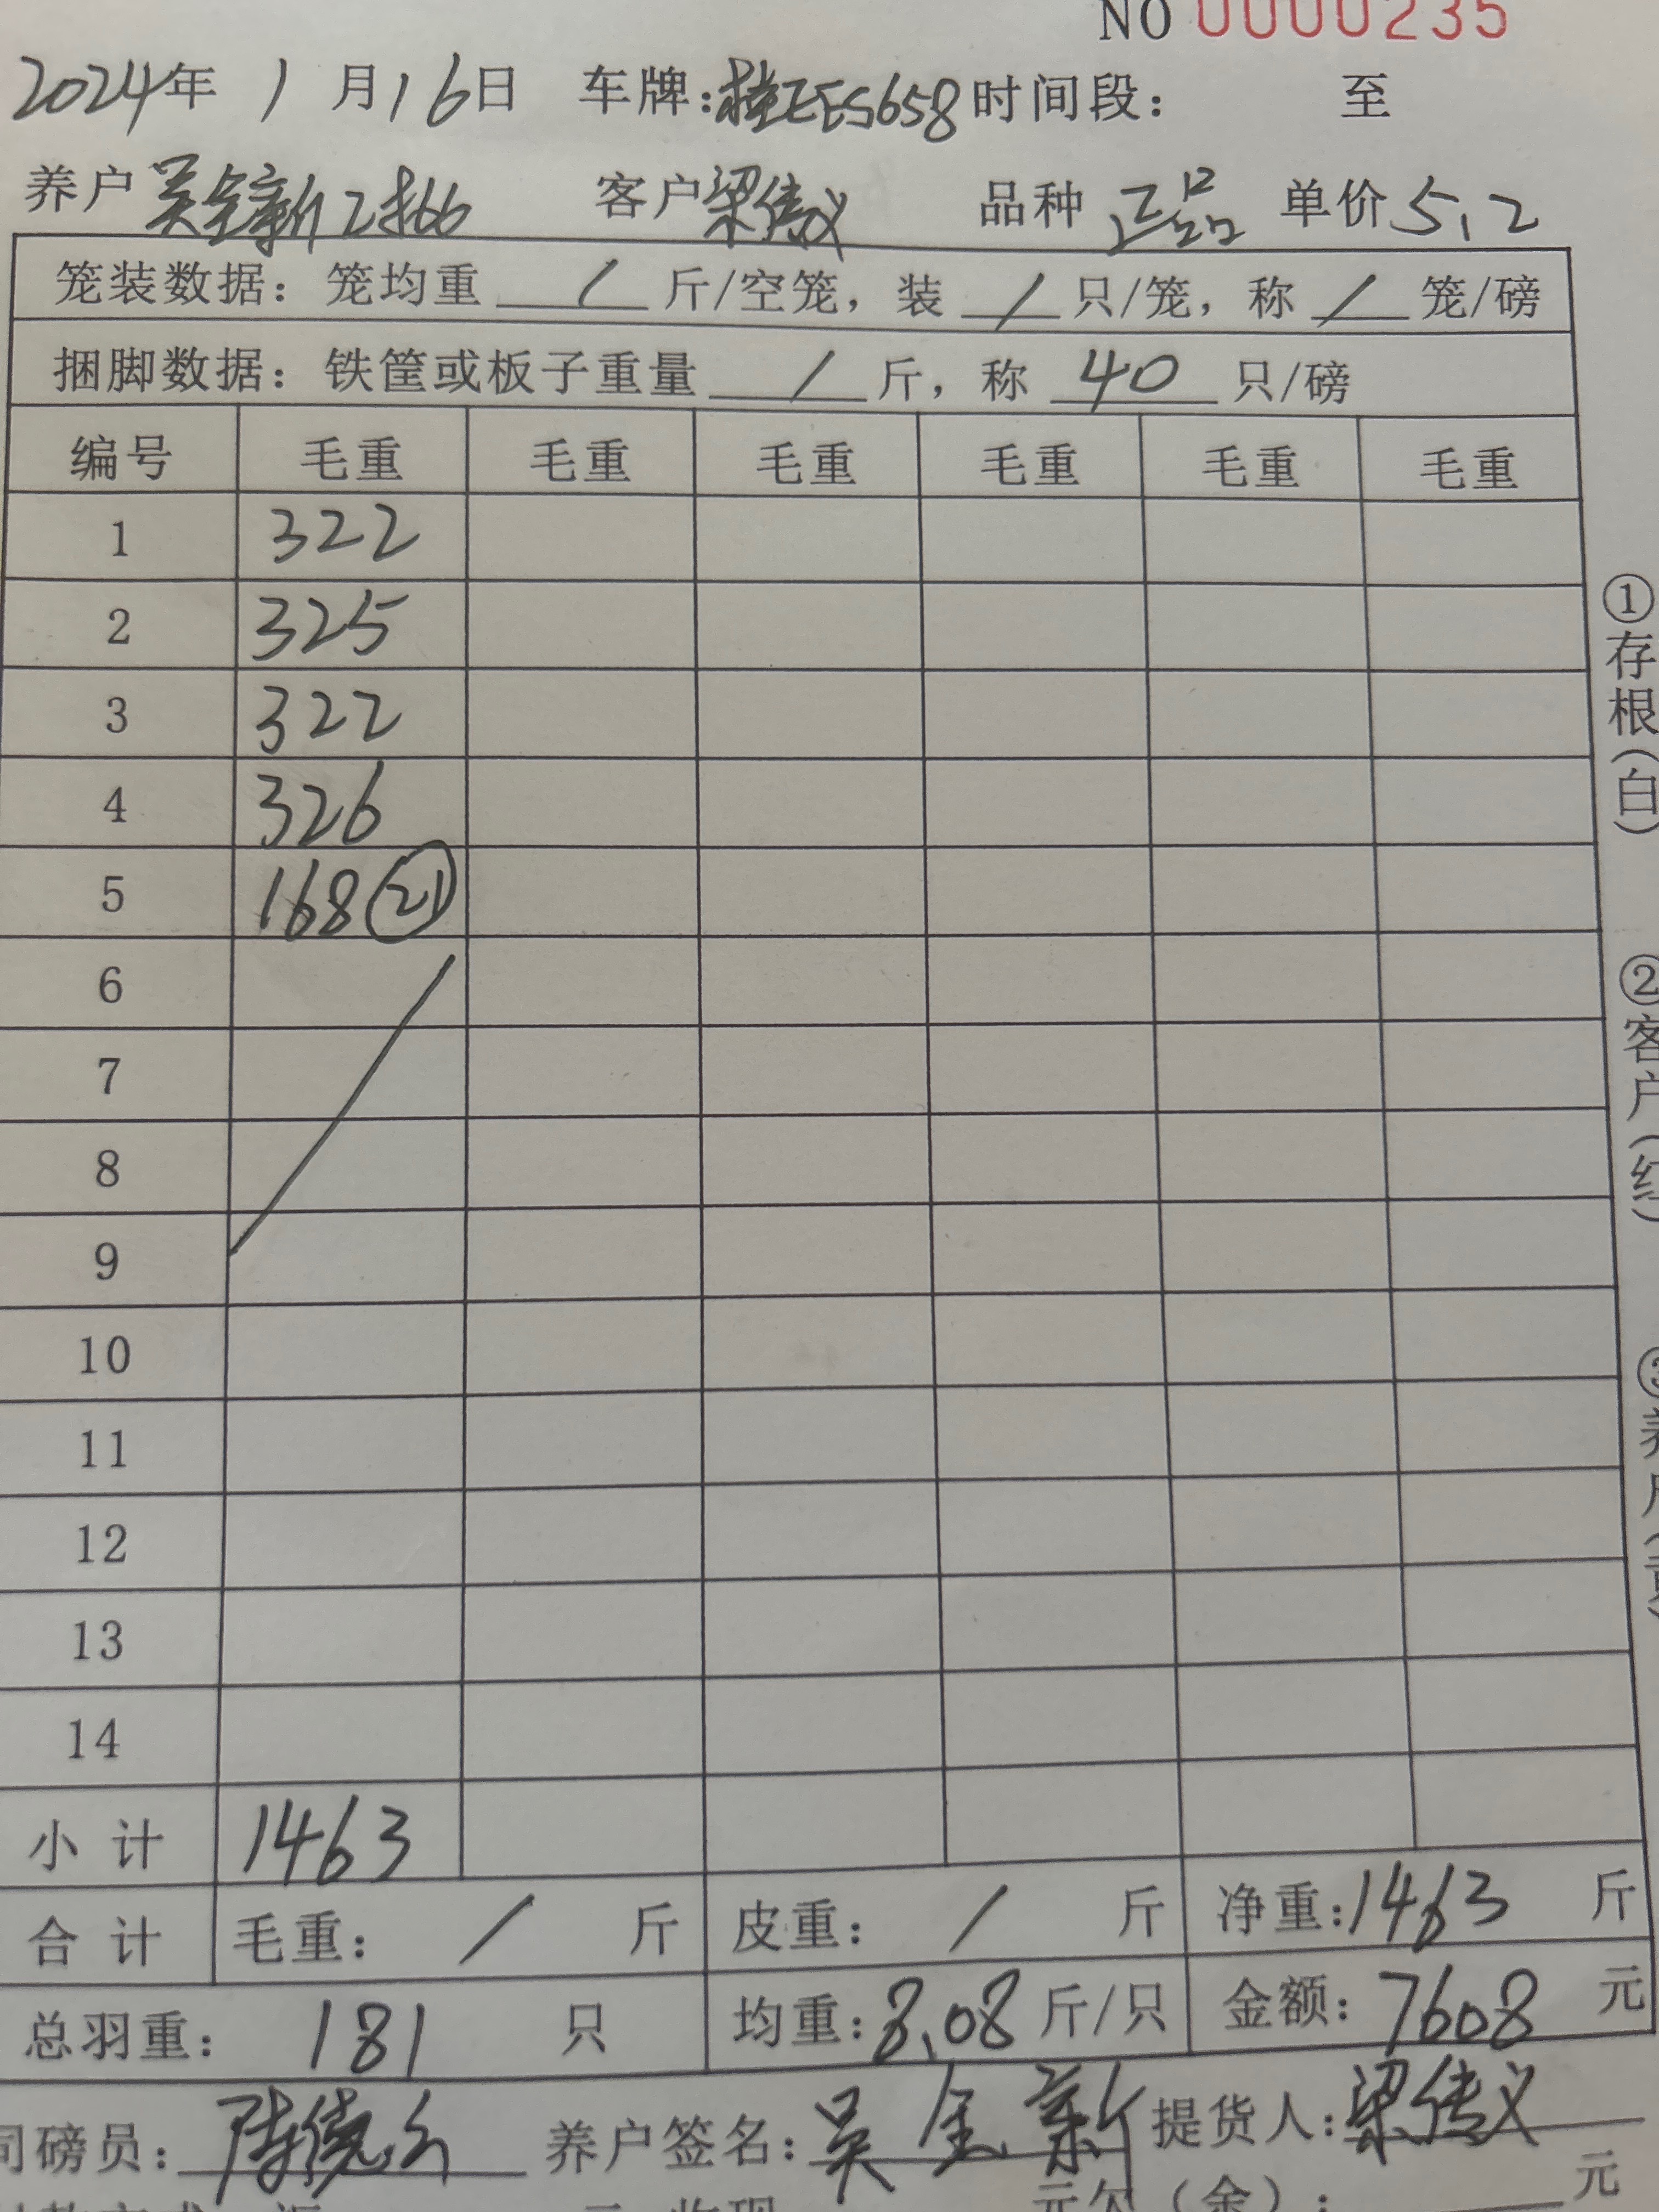 NO 0000235
2024年 1 月16日 车牌:桂EES658 时间段: 至
养户 吴金新2批 客户 梁传义 品种 正品 单价 5.2
笼装数据: 笼均重 / 斤/空笼, 装 / 只/笼, 称 / 笼/磅
捆脚数据: 铁筐或板子重量 / 斤, 称 40 只/磅
编号 毛重 毛重 毛重 毛重 毛重 毛重
1 322
2 325
3 322
4 326
5 168 (21)
6
7
8
9
10
11
12
13
14
小计 1463
合计 毛重: / 斤 皮重: / 斤 净重: 1463 斤
总羽重: 181 只 均重: 8.08 斤/只 金额: 7608 元
司磅员: 养户签名: 吴金新 提货人: 梁传义
元
①存根(白)
②客户(红)